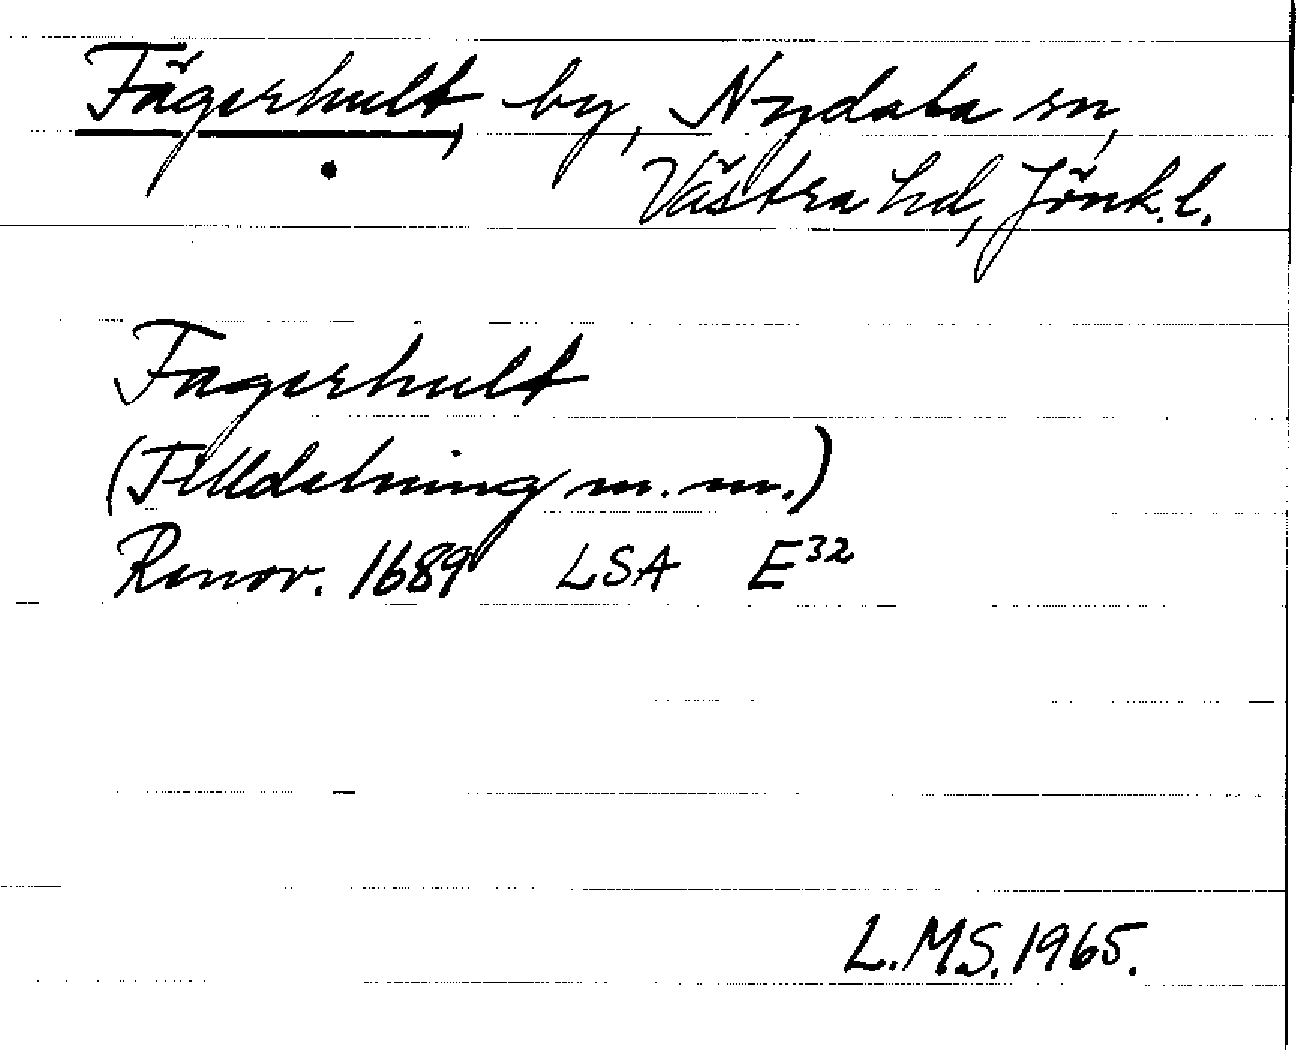 Fägerhult, by, Nydala sn,
Västra hd, Jönk.l.
Fagerhult
(Tilldelning m.m.)
Renov. 1689 LSA E32
L.M.S. 1965.